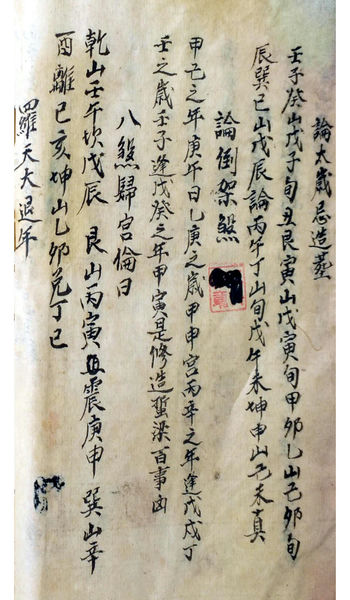 論太歲忌造葬
壬子癸山戊子旬丑艮寅山戊寅旬甲卯乙山己卯旬
辰巽巳山戊辰論丙午丁山旬戊午未坤申山己未真
論倒架煞
甲己之年庚午日乙庚之歲甲申宫丙辛之年逢戊戌丁
壬之歲壬子逢戊癸之年甲寅是修造竪梁百事凶
八煞歸宫倫曰
乾山壬午坎戊辰 艮山丙寅震庚申 巽山辛
酉離己亥坤山乙卯兌丁巳
四羅天大退年